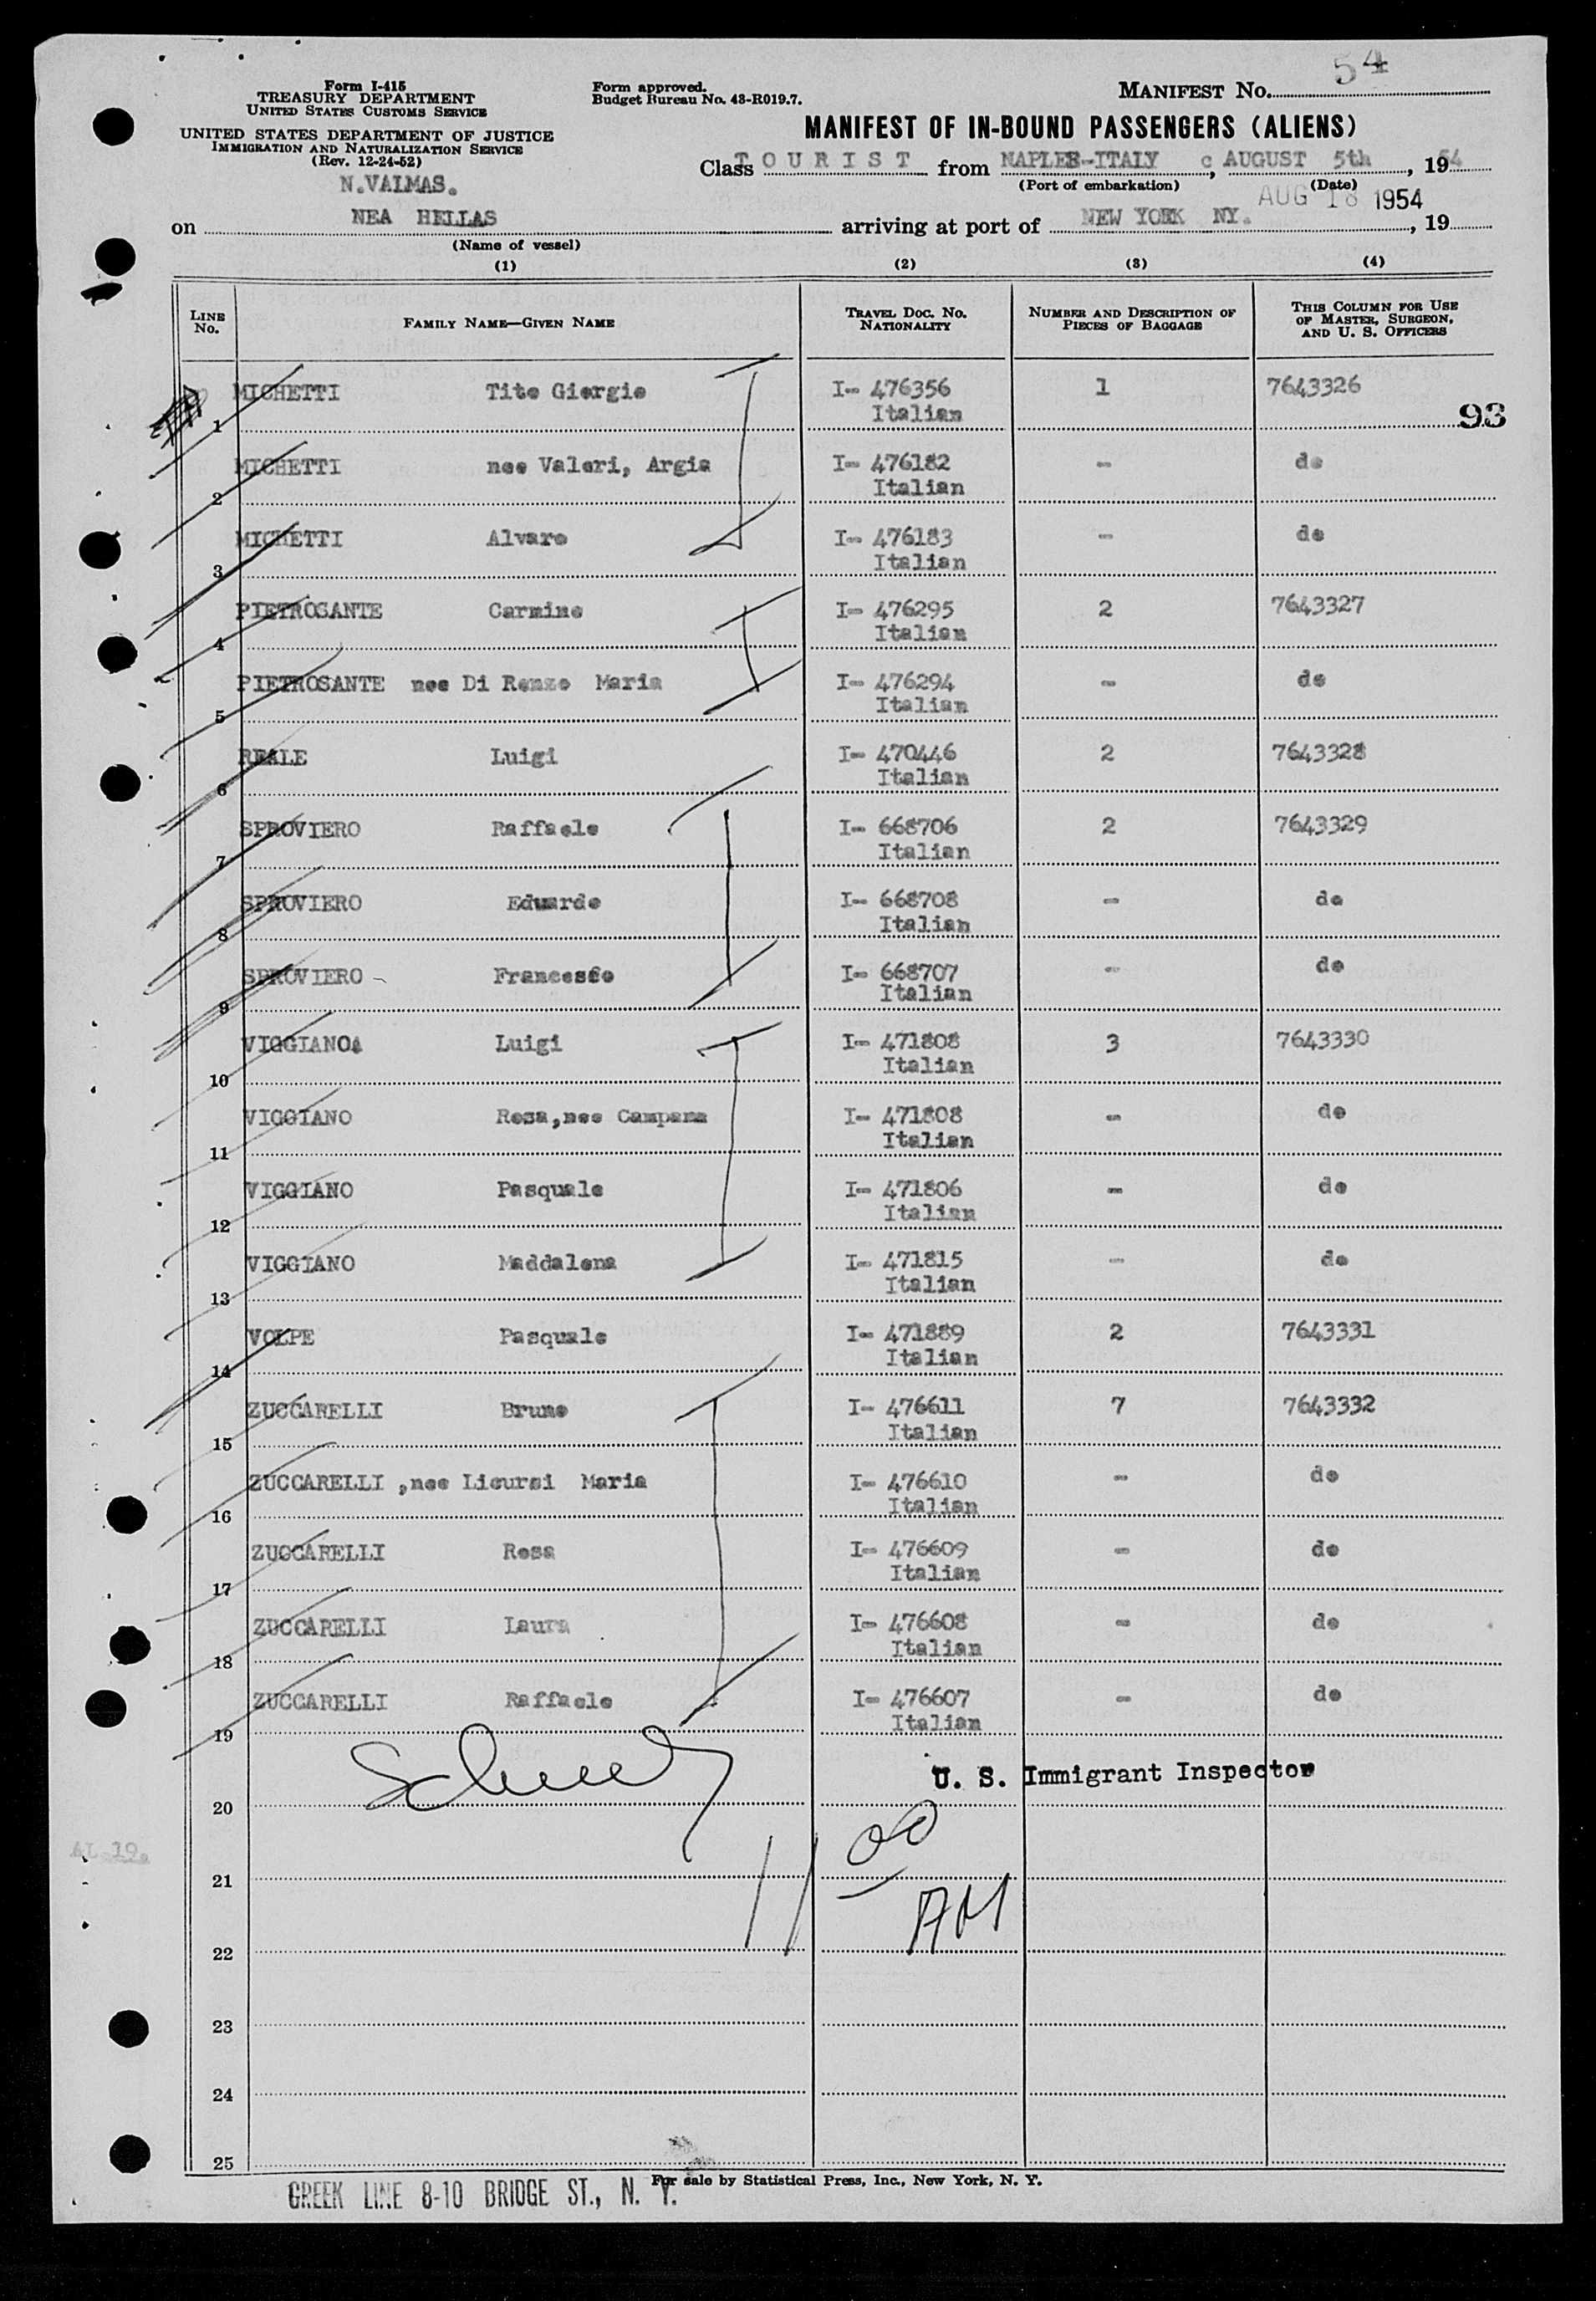 54
Form I-415
TREASURY DEPARTMENT
UNITED STATES CUSTOMS SERVICE
UNITED STATES DEPARTMENT OF JUSTICE
IMMIGRATION AND NATURALIZATION SERVICE
(Rev. 12-24-52)
Form approved.
Budget Bureau No. 43-R019.7.
MANIFEST No.
MANIFEST OF IN-BOUND PASSENGERS (ALIENS)
Class TOURIST from NAPLES-ITALY c, AUGUST 5th, 1954
(Port of embarkation) (Date)
N.VALMAS.
AUG 18 1954
on NEA HELLAS arriving at port of NEW YORK NY., 19
(Name of vessel)
(1) (2) (3) (4)
LINE No. FAMILY NAME—GIVEN NAME TRAVEL DOC. No. NATIONALITY NUMBER AND DESCRIPTION OF PIECES OF BAGGAGE THIS COLUMN FOR USE OF MASTER, SURGEON, AND U. S. OFFICERS
1 MICHETTI Tito Giorgio I- 476356 Italian 1 7643326
93
2 MICHETTI nee Valeri, Argia I- 476182 Italian - do
3 MICHETTI Alvaro I- 476183 Italian - do
4 PIETROSANTE Carmine I- 476295 Italian 2 7643327
5 PIETROSANTE nee Di Renzo Maria I- 476294 Italian - do
6 REALE Luigi I- 470446 Italian 2 7643328
7 SPROVIERO Raffaele I- 668706 Italian 2 7643329
8 SPROVIERO Eduardo I- 668708 Italian - do
9 SPROVIERO - Francesco I- 668707 Italian - do
10 VIGGIANO Luigi I- 471808 Italian 3 7643330
11 VIGGIANO Rosa,nee Campana I- 471808 Italian - do
12 VIGGIANO Pasquale I- 471806 Italian - do
13 VIGGIANO Maddalena I- 471815 Italian - do
14 VOLPE Pasquale I- 471889 Italian 2 7643331
15 ZUCCARELLI Bruno I- 476611 Italian 7 7643332
16 ZUCCARELLI ,nee Licursi Maria I- 476610 Italian - do
17 ZUCCARELLI Rosa I- 476609 Italian - do
18 ZUCCARELLI Laura I- 476608 Italian - do
19 ZUCCARELLI Raffaele I- 476607 Italian - do
U. S. Immigrant Inspector
20
11 00
21
AM
22
23
24
25
For sale by Statistical Press, Inc., New York, N. Y.
GREEK LINE 8-10 BRIDGE ST., N. Y.